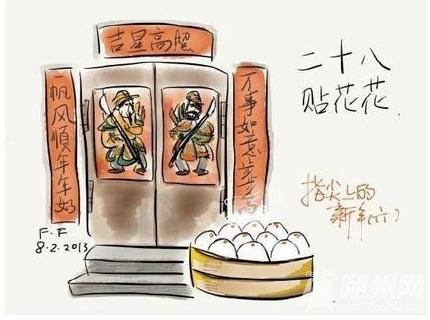 吉星高照
一帆风顺年年好
万事如意步步高
二十八
贴花花
指尖上的
新年(六)
F.F
8.2.2013
随州网